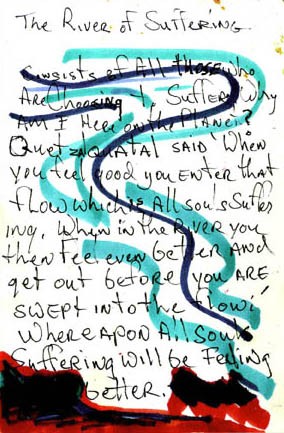 The River of Suffering.
Consists of All those who
Are Choosing to Suffer. Why
Am I Here on the Planet?
Quetzalquatal said When
you feel good you Enter that
flow which is All souls Suffer
ing. When in the River you
then feel even better And
get out before you ARE
swept into the flow,
Where apon All Souls
Suffering will be Feeling
better.